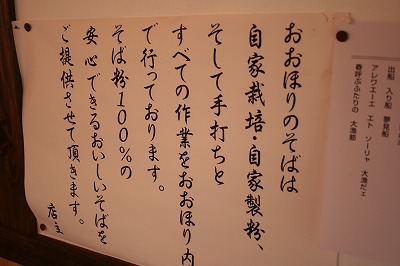 おおほりのそばは
自家栽培・自家製粉、
そして手打ちと
すべての作業をおおほり内
で行っております。
そば粉100%の
安心できるおいしいそばを
ご提供させて頂きます。
店主
出船 入り船 夢見船
アレワエーエ エト ソーリャ 大漁だエ
春呼ぶふたりの 大漁節